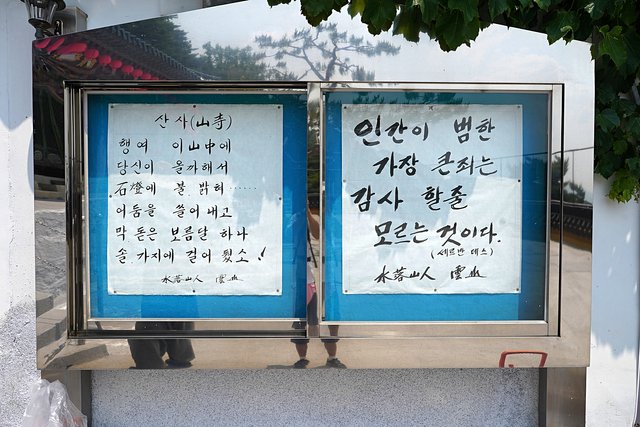 산사(山寺)
행여 이山中에
당신이 올까해서
石燈에 불 밝혀······
어둠을 쓸어 내고
막 돋은 보름달 하나
솔 가지에 걸어 뒀소!
水落山人 雲山
인간이 범한
가장 큰죄는
감사 할줄
모르는 것이다.
(세르반 데스)
水落山人 雲山